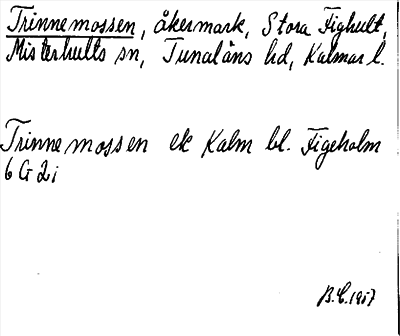 Trinnemossen, åkermark, Stora Fighult,
Misterhults sn, Tunaläns hd, Kalmar l.
Trinnemossen ek Kalm bl. Figeholm
6 G 2 i
B.C. 1957